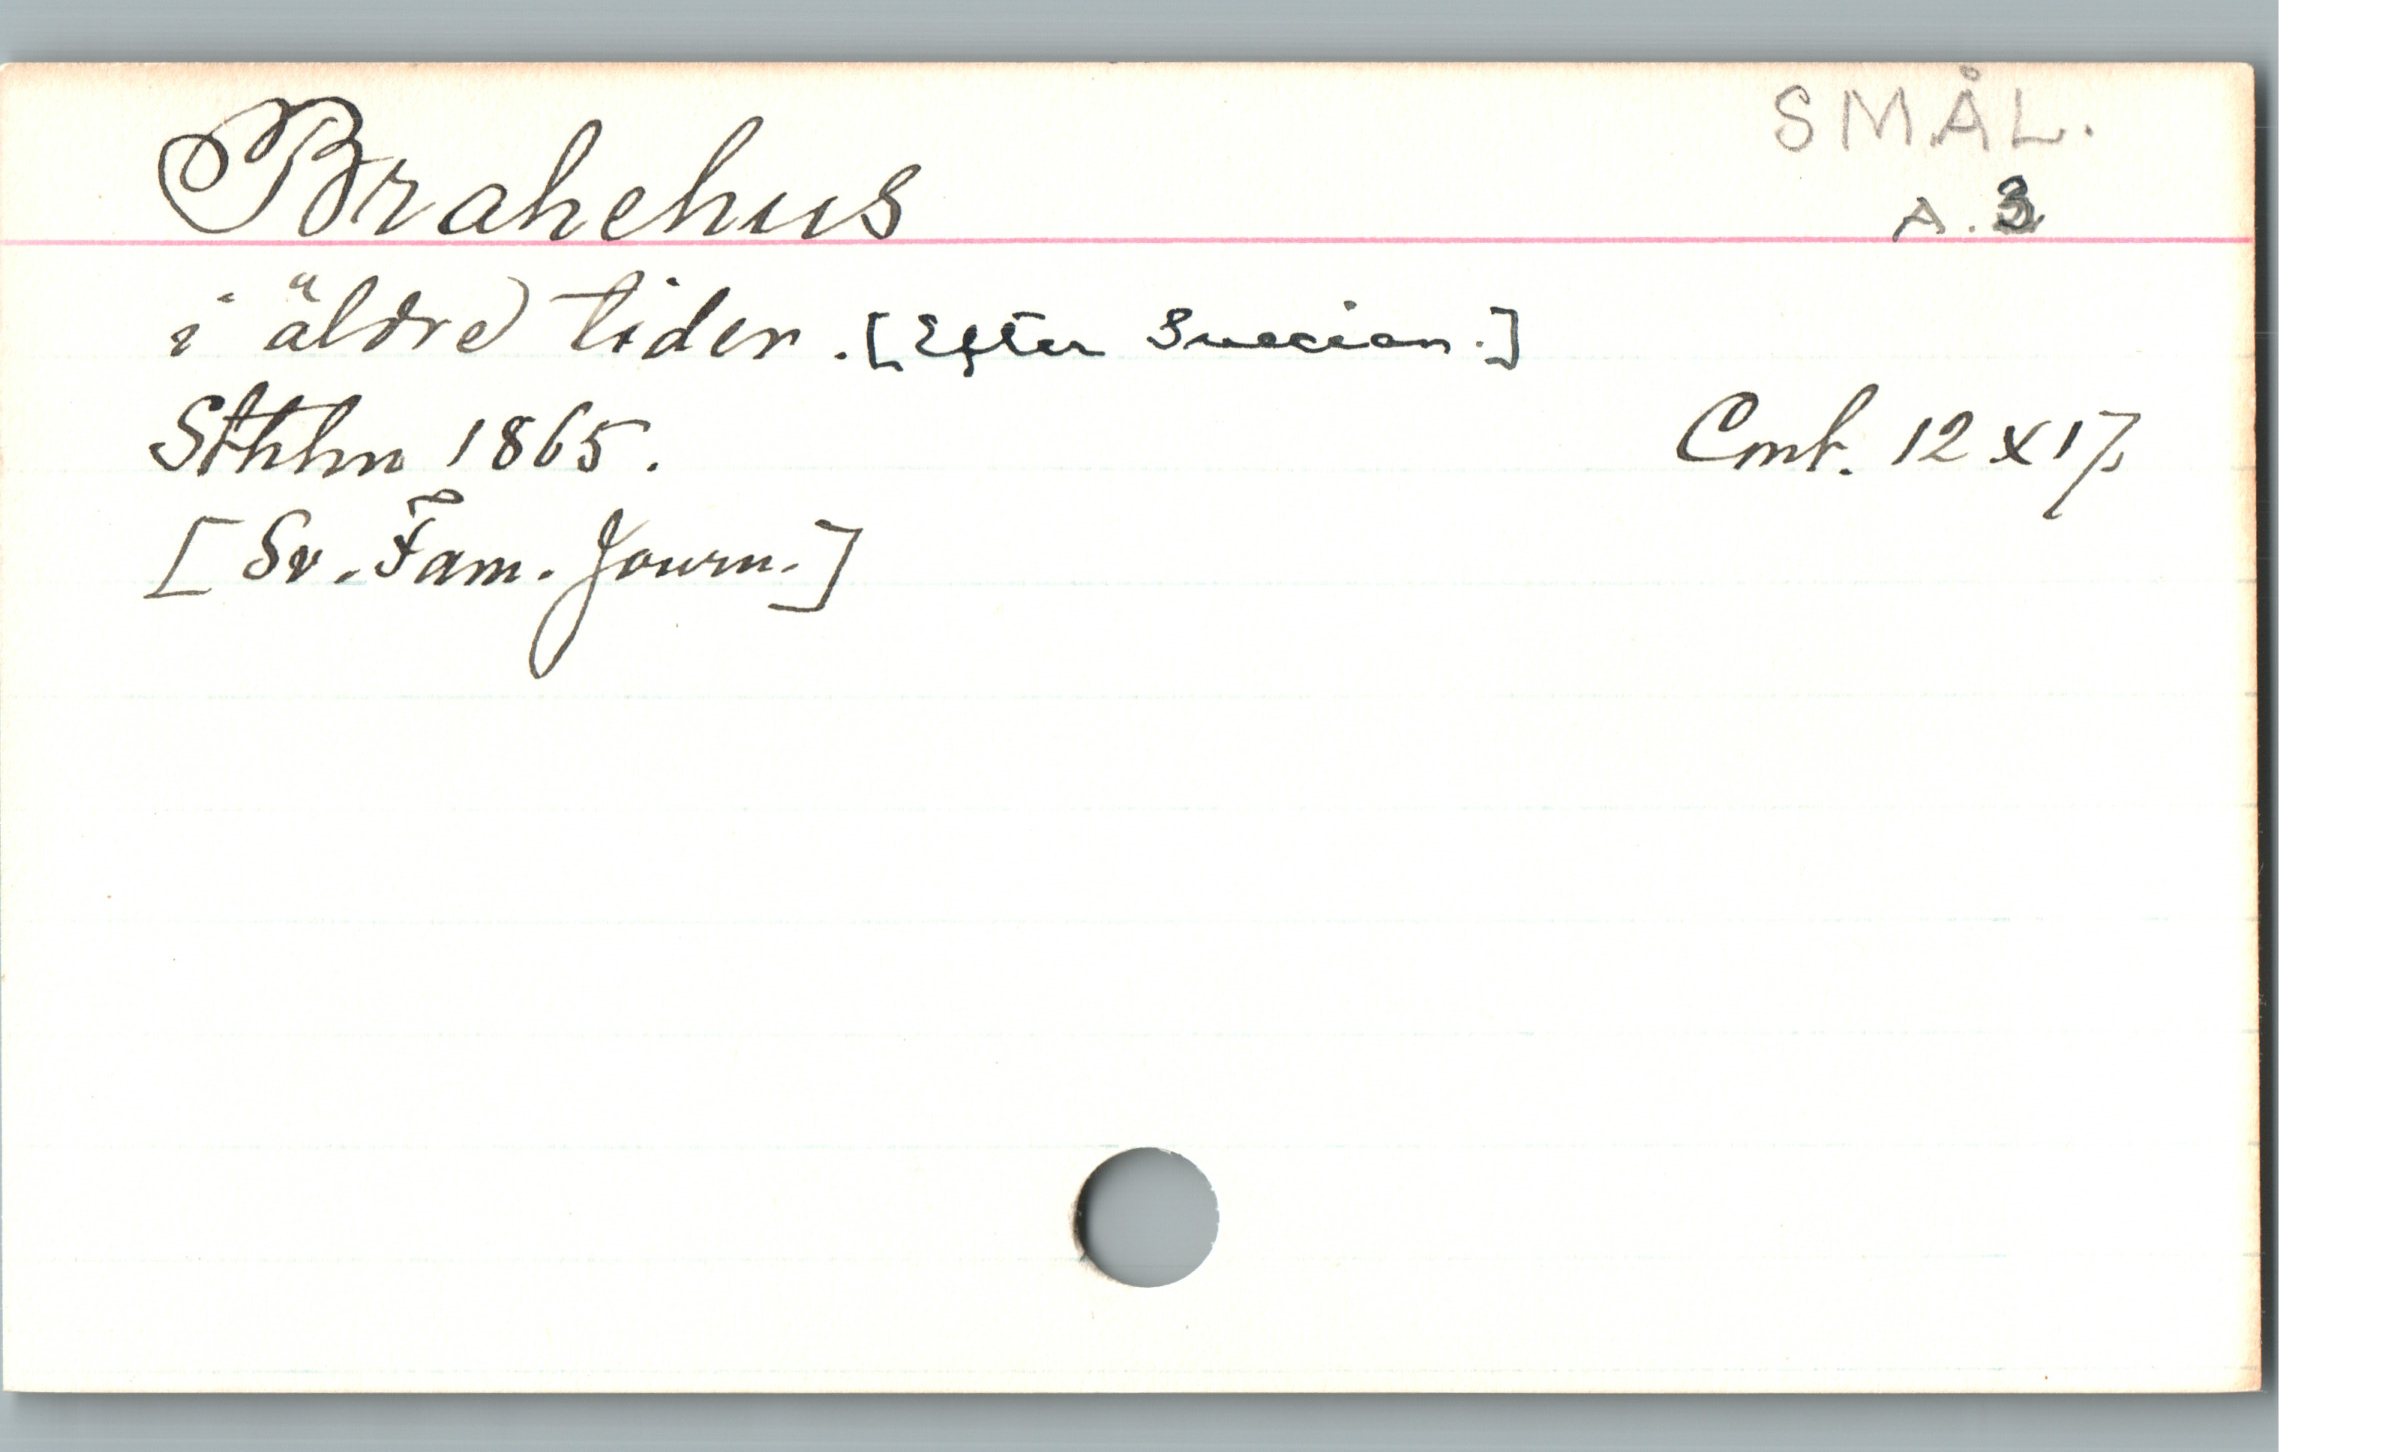 Brahehus
SMÅL.
A. 3
i äldre tider. [Efter Suecian.]
Sthlm 1865.
Cmt. 12 x 17
[Sv. Fam. Journ.]